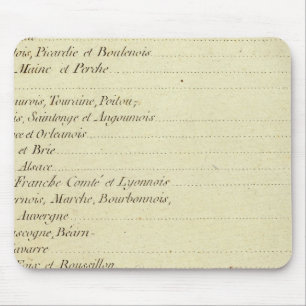 ois, Picardie et Boulenois
Maine et Perche
aurois, Touraine, Poitou,
is, Saintonge et Angoumois
ce et Orleanois
et Brie
Alsace
Franche Comté et Lyonnois
ernois, Marche, Bourbonnois,
Auvergne
ascogne, Béarn
avarre
Foix et Roussillon